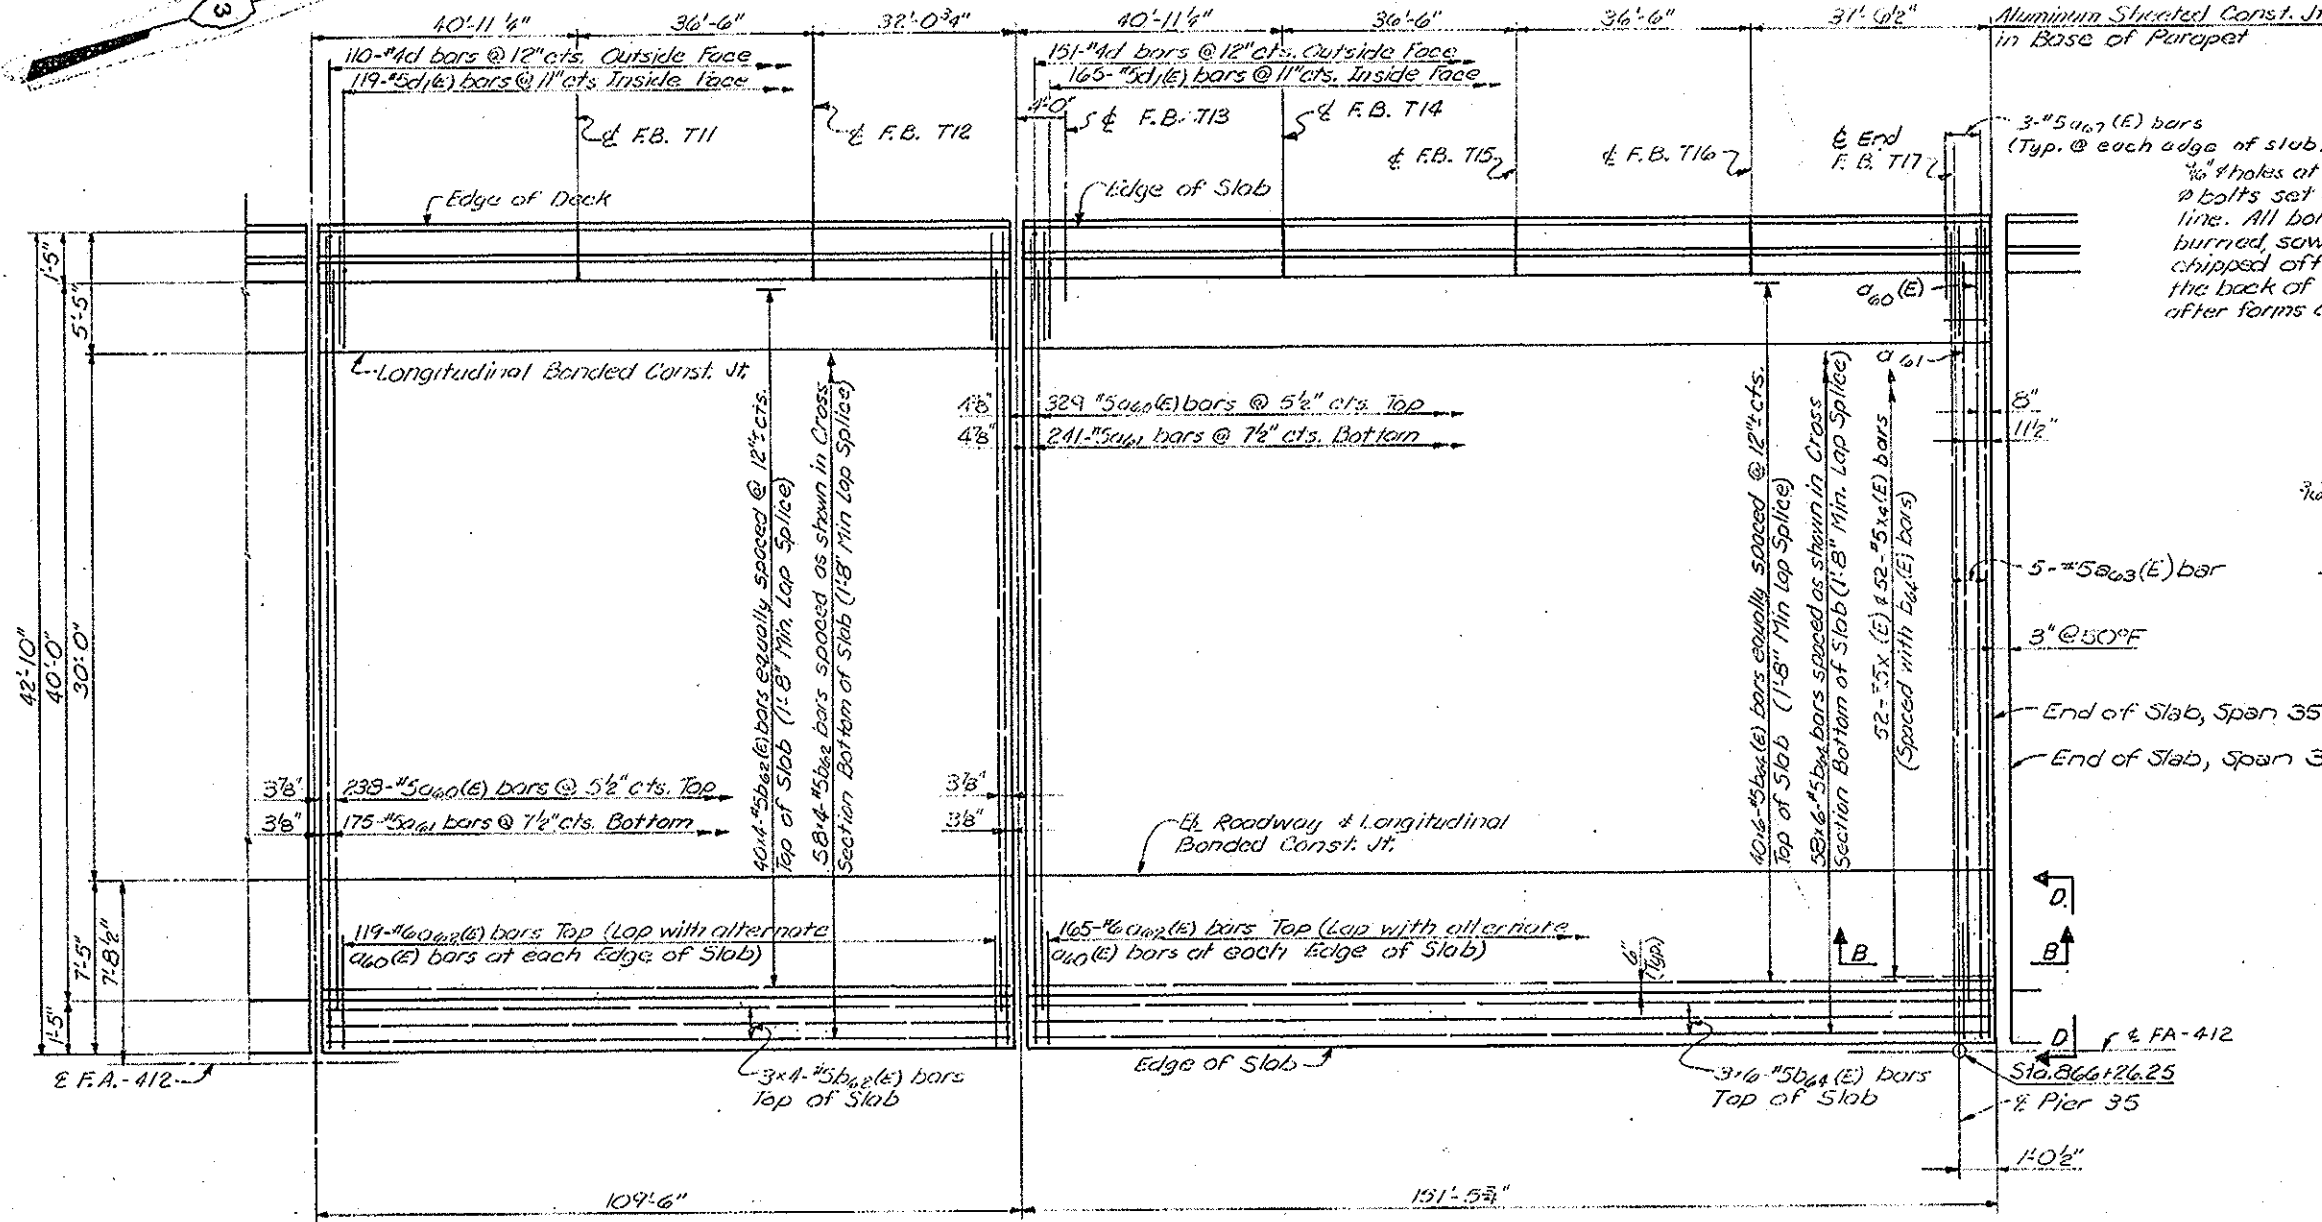 3
40'-11¼"
36'-6"
32'-0¾"
40'-11¼"
36'-6"
36'-6"
31'-6½"
Aluminum Sheeted Const. Jt.
in Base of Parapet
110-#4d bars @ 12" cts. Outside Face
119-#5d₁(E) bars @ 11" cts Inside Face
151-#4d bars @ 12" cts. Outside Face
165-#5d₁(E) bars @ 11" cts. Inside Face
4'-0"
℄ F.B. T11
℄ F.B. T12
℄ F.B. T13
℄ F.B. T14
℄ F.B. T15
℄ F.B. T16
℄ End
F.B. T17
3-#5a₆₇(E) bars
(Typ. @ each edge of slab)
holes at
φ bolts set
line. All
burned, saw
chipped off
the back of
after forms
Edge of Deck
Edge of Slab
a₆₀(E)
a₆₁
1'-5"
5'-5"
42'-10"
40'-0"
30'-0"
Longitudinal Bonded Const. Jt.
40x4-#5b₆₂(E) bars equally spaced @ 12"± cts.
Top of Slab (1'-8" Min. Lap Splice)
58x4-#5b₆₂ bars spaced as shown in Cross
Section Bottom of Slab (1'-8" Min Lap Splice)
4⅞"
329 #5a₆₀(E) bars @ 5½" cts. Top
4⅞"
241-#5a₆₁ bars @ 7½" cts. Bottom
40x6-#5b₆₄(E) bars equally spaced @ 12"± cts.
Top of Slab (1'-8" Min Lap Splice)
58x6-#5b₆₄ bars spaced as shown in Cross
Section Bottom of Slab (1'-8" Min. Lap Splice)
52-#5x(E) & 52-#5x₄(E) bars
(Spaced with b₆₄(E) bars)
8"
11½"
5-#5a₆₃(E) bar
3" @ 50°F
End of Slab, Span 35
End of Slab, Span 3
3⅞"
238-#5a₆₀(E) bars @ 5½" cts. Top
3⅛"
175-#5a₆₁ bars @ 7½" cts. Bottom
3⅞"
3⅛"
℄ Roadway & Longitudinal
Bonded Const. Jt.
7'-5"
7'-8½"
1'-5"
119-#6a₆₂(E) bars Top (Lap with alternate
a₆₀(E) bars at each Edge of Slab)
165-#6a₆₂(E) bars Top (Lap with alternate
a₆₀(E) bars at each Edge of Slab)
6"
(Typ.)
B
B
D
D
℄ F.A.-412
3x4-#5b₆₂(E) bars
Top of Slab
Edge of Slab
3x6-#5b₆₄(E) bars
Top of Slab
℄ FA-412
Sta. 866+26.25
℄ Pier 35
1'-0½"
109'-6"
151'-5¾"